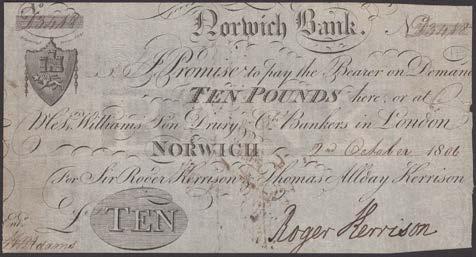 Nº 13418 Norwich Bank. Nº 13418
I Promise to pay the Bearer on Demand
TEN POUNDS here, or at
Messrs. Williams Son Drury & Co. Bankers in London
NORWICH 2nd October 1806
For Sir Roger Kerrison & Thomas Allday Kerrison
£ TEN
Roger Kerrison
Entd.
Adams